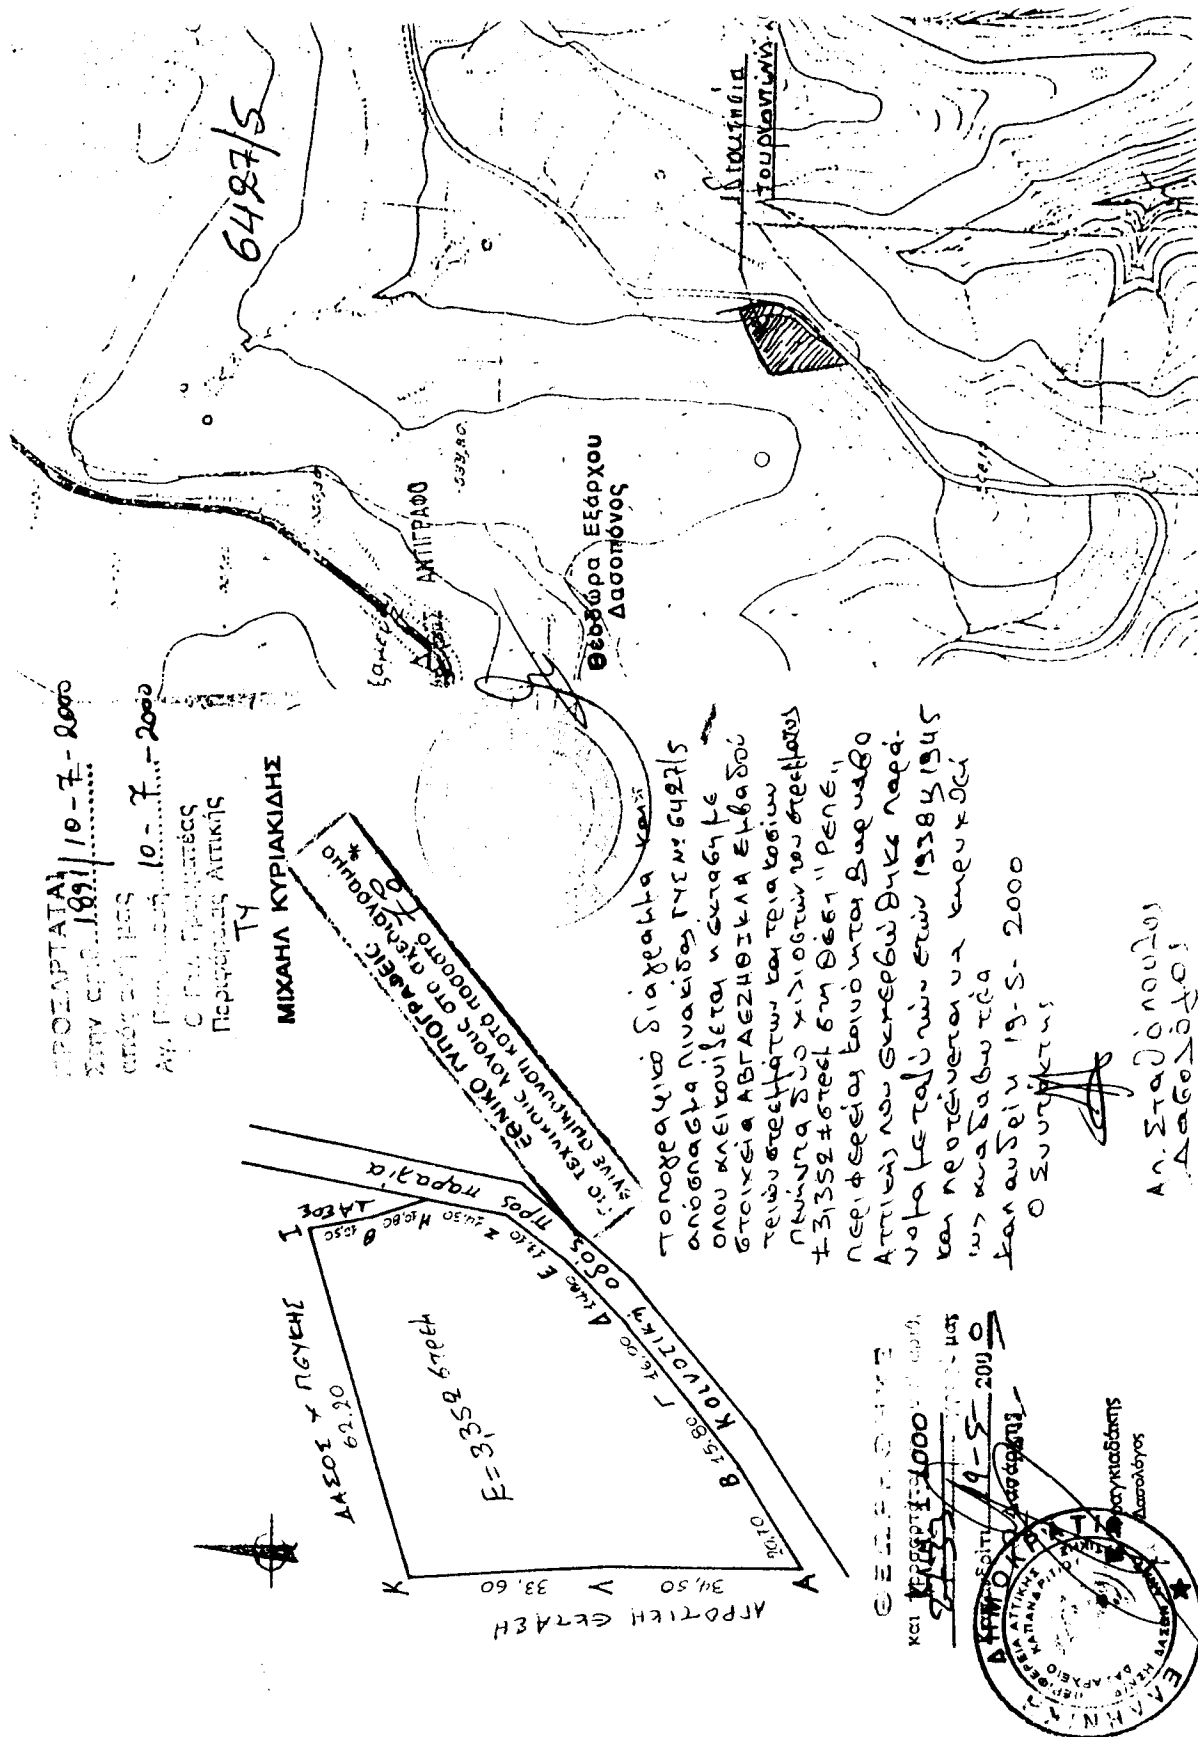 ΠΡΟΣΑΡΤΑΤΑΙ
Στην αριθ. 1891/10-7-2000
απόφασή μας
Αγ. Παρασκευή 10-7-2000
Ο Γεν. Γραμματέας
Περιφέρειας Αττικής
ΤΥ
ΜΙΧΑΗΛ ΚΥΡΙΑΚΙΔΗΣ
6427/5
Ιδιοκτησία
ΑΝΤΙΓΡΑΦΟ
533,80
Θεοδώρα Εξάρχου
Δασοπόνος
ΕΘΝΙΚΟ ΤΥΠΟΓΡΑΦΕΙΟ
Για τεχνικούς λόγους στο σχεδιάγραμμα *
έγινε σμίκρυνση κατά ποσοστό 70
ΔΑΣΟΣ
ΔΑΣΟΣ Χ ΠΕΥΚΗΣ
62.20
Ε=3,352 στρεμ
Ι
Θ 10,50
Η 10,80
Ζ 14,30
Ε 13,10
Δ 14,80
Γ 16,00
Β 15,80
20,70
Α
34,50
Λ
33,60
Κ
ΑΓΡΟΤΙΚΗ ΕΚΤΑΣΗ
Κοινοτική οδός προς παραλία
Τοπογραφικό διάγραμμα και
απόσπασμα πινακίδας ΓΥΣ Νο 6427/5
όπου απεικονίζεται η έκταση με
στοιχεία ΑΒΓΔΕΖΗΘΙΚΛΑ εμβαδού
τριών στρεμμάτων και τριακοσίων
πενήντα δύο χιλιοστών του στρέμματος
±3,352 στρεμ στη θέση "ΡΕΠΕ"
περιφερείας κοινότητας Βαρνάβα
Αττικής που εκχερσώθηκε παρά-
νομα μεταξύ των ετών 1938 & 1945
και προτείνεται να κηρυχθεί
ως αναδασωτέα
Καπανδρίτι 19-5-2000
Ο Συντάκτης
Απ. Σταθόπουλος
Δασολόγος
ΘΕΩΡΗΘΗΚΕ
και
Κλίμαξ 1:1000
μας
Καπανδρίτι 19-5-2000
Ο Δασάρχης
Δασολόγος
ΕΛΛΗΝΙΚΗ ΔΗΜΟΚΡΑΤΙΑ
ΠΕΡΙΦΕΡΕΙΑ ΑΤΤΙΚΗΣ
ΔΑΣΑΡΧΕΙΟ ΚΑΠΑΝΔΡΙΤΙΟΥ